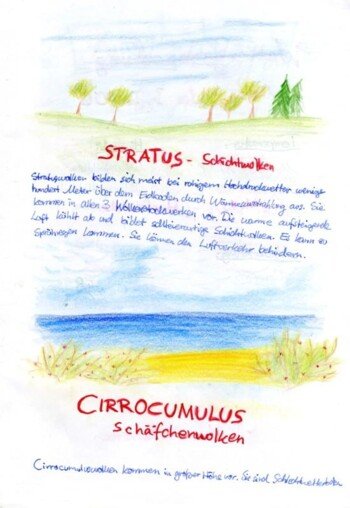 STRATUS - Schichtwolken
Stratuswolken bilden sich meist bei ruhigem Hochdruckwetter wenige
hundert Meter über dem Erdboden durch Wärmeausstrahlung aus. Sie
kommen in allen 3 Wolkenstockwerken vor. Die warme aufsteigende
Luft kühlt ab und bildet Schichtwolken. Es kann zu
Sprühregen kommen. Sie können den Luftverkehr behindern.
CIRROCUMULUS
Schäfchenwolken
Cirrocumuluswolken kommen in großer Höhe vor. Sie sind